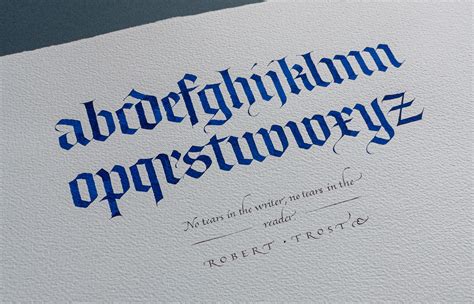 abcdefghijklmn
opqrstuvwxyz
No tears in the writer, no tears in the
reader
ROBERT · TROST